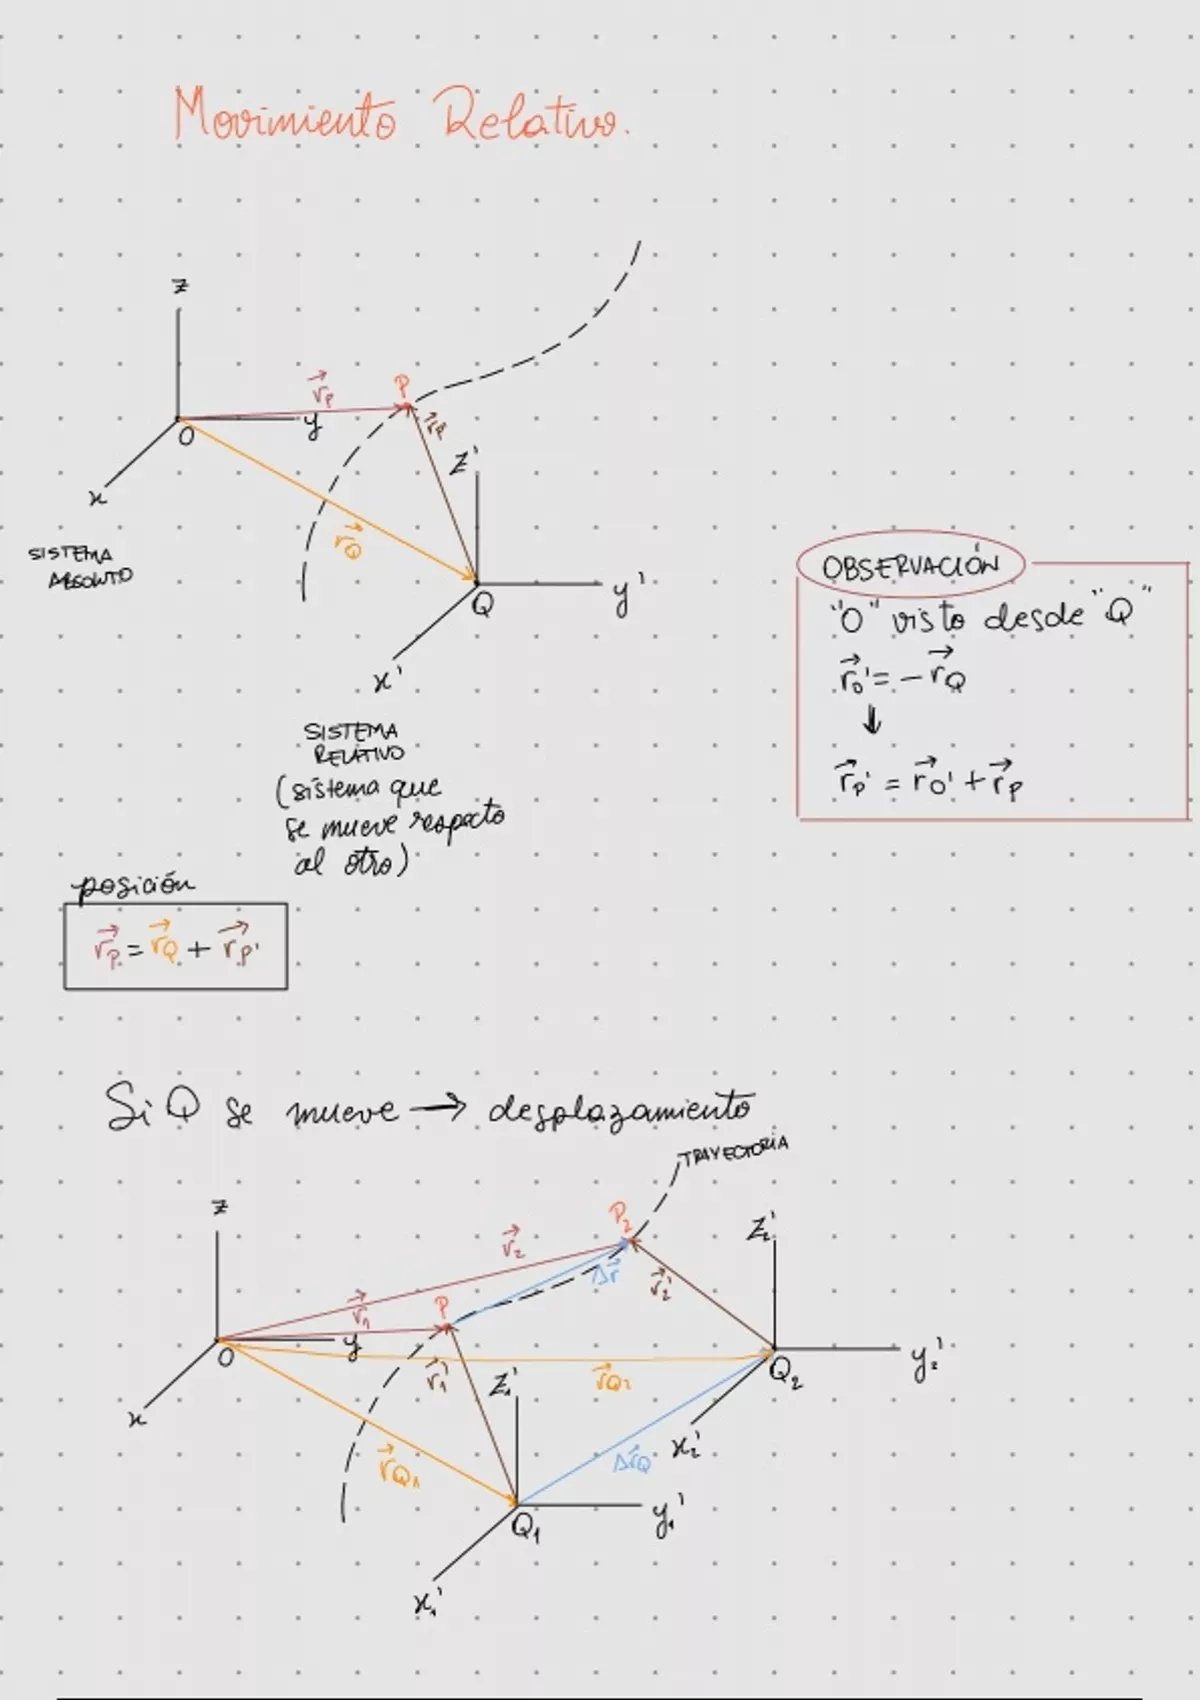 Movimiento Relativo.
z
r⃗p
P
y
O
x
z'
r⃗Q
Q
y'
x'
SISTEMA
ABSOLUTO
SISTEMA
RELATIVO
(sistema que
se mueve respecto
al otro)
OBSERVACIÓN
"O" visto desde "Q"
r⃗o' = - r⃗Q
↓
r⃗p' = r⃗o' + r⃗p
posición
r⃗p = r⃗Q + r⃗p'
Si Q se mueve → desplazamiento
TRAYECTORIA
z
P₂
z₂'
r⃗₂
Δr⃗
r⃗₂'
r⃗₁
P
y
O
r⃗₁'
z₁'
r⃗Q₂
Q₂
y₂'
x
r⃗Q₁
Δr⃗Q
x₂'
Q₁
y₁'
x₁'